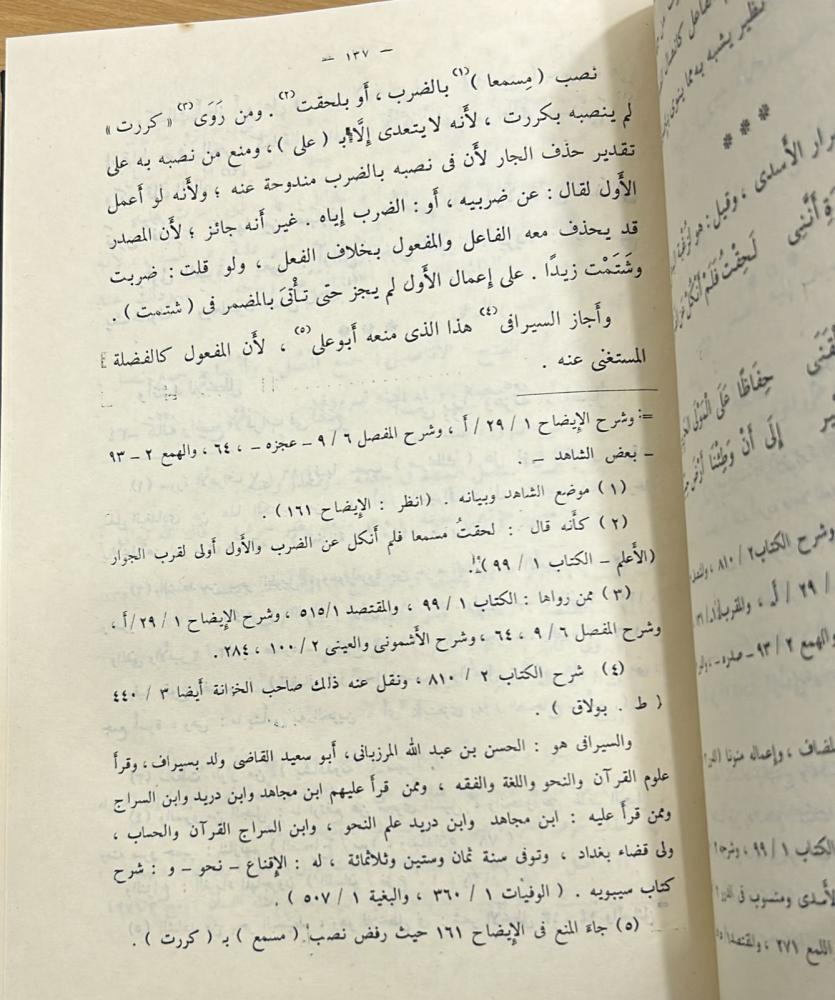 — ١٣٧ —
نصب ( مِسمعا )(١) بالضرب ، أَو بلحقت(٢) . ومن رَوَى(٣) « كررت »
لم ينصبه بكررت ، لأَنه لا يتعدى إِلَّا بـ ( على ) ، ومنع من نصبه به على
تقدير حذف الجار لأَن فى نصبه بالضرب مندوحة عنه ؛ ولأَنه لو أَعمل
الأَول لقال : عن ضربيه ، أَو : الضرب إِياه . غير أَنه جائز ؛ لأَن المصدر
قد يحذف معه الفاعل والمفعول بخلاف الفعل ، ولو قلت : ضربت
وشَتَمْت زيدًا . على إِعمال الأَول لم يجز حتى تـأْتىَ بالمضمر فى ( شتمت ) .
وأَجاز السيرافى(٤) هذا الذى منعه أَبوعلى(٥) ، لأَن المفعول كالفضلة
المستغنى عنه .
=: وشرح الإيضاح ١ / ٢٩ / أ ، وشرح المفصل ٦ / ٩ – عجزه – ، ٦٤ ، والهمع ٢ – ٩٣
– بعض الشاهد – .
( ١ ) موضع الشاهد وبيانه . (انظر : الإيضاح ١٦١ ) .
( ٢ ) كأنه قال : لحقتُ مسمعا فلم أنكل عن الضرب والأول أولى لقرب الجوار
(الأعلم – الكتاب ١ / ٩٩ ) .
( ٣ ) ممن رواها : الكتاب ١ / ٩٩ ، والمقتصد ١/ ٥١٥ ، وشرح الإيضاح ١ / ٢٩/ أ ،
وشرح المفصل ٦ / ٩ ، ٦٤ ، وشرح الأشمونى والعينى ٢ / ١٠٠ ، ٢٨٤ .
( ٤ ) شرح الكتاب ٢ / ٨١٠ ، ونقل عنه ذلك صاحب الخزانة أيضا ٣ / ٤٤٠
( ط . بولاق ) .
والسيرافى هو : الحسن بن عبد الله المرزبانى، أبو سعيد القاضى ولد بسيراف، وقرأ
علوم القرآن والنحو واللغة والفقه ، وممن قرأ عليهم ابن مجاهد وابن دريد وابن السراج
وممن قرأ عليه : ابن مجاهد وابن دريد علم النحو ، وابن السراج القرآن والحساب ،
ولى قضاء بغداد ، وتوفى سنة ثمان وستين وثلاثمائة ، له : الإقناع – نحو – و : شرح
كتاب سيبويه . ( الوفيات ١ / ٣٦٠ ، والبغية ١ / ٥٠٧ ) .
( ٥ ) جاء المنع فى الإيضاح ١٦١ حيث رفض نصب ( مسمع ) بـ ( كررت ) .
نظير يشبه به
* * *
رار الأَسدى ، وقيل : هو
ةِ أَنَّنِى لَحِقْتُ فَلَمْ أَنْكُلْ
حِفَاظًا عَلَى الْمَوْلَى
إِلَى أَنْ وَطِئْنَا أَرْضَ
وشرح الكتاب ٢ / ٨١٠ ،
/ ٢٩ / أ ،
والهمع ٢ / ٩٣ – صدره – ،
، وإعماله منونا
الكتاب ١ / ٩٩ ،
ومنسوب فى
اللمع ٢٧١ ،